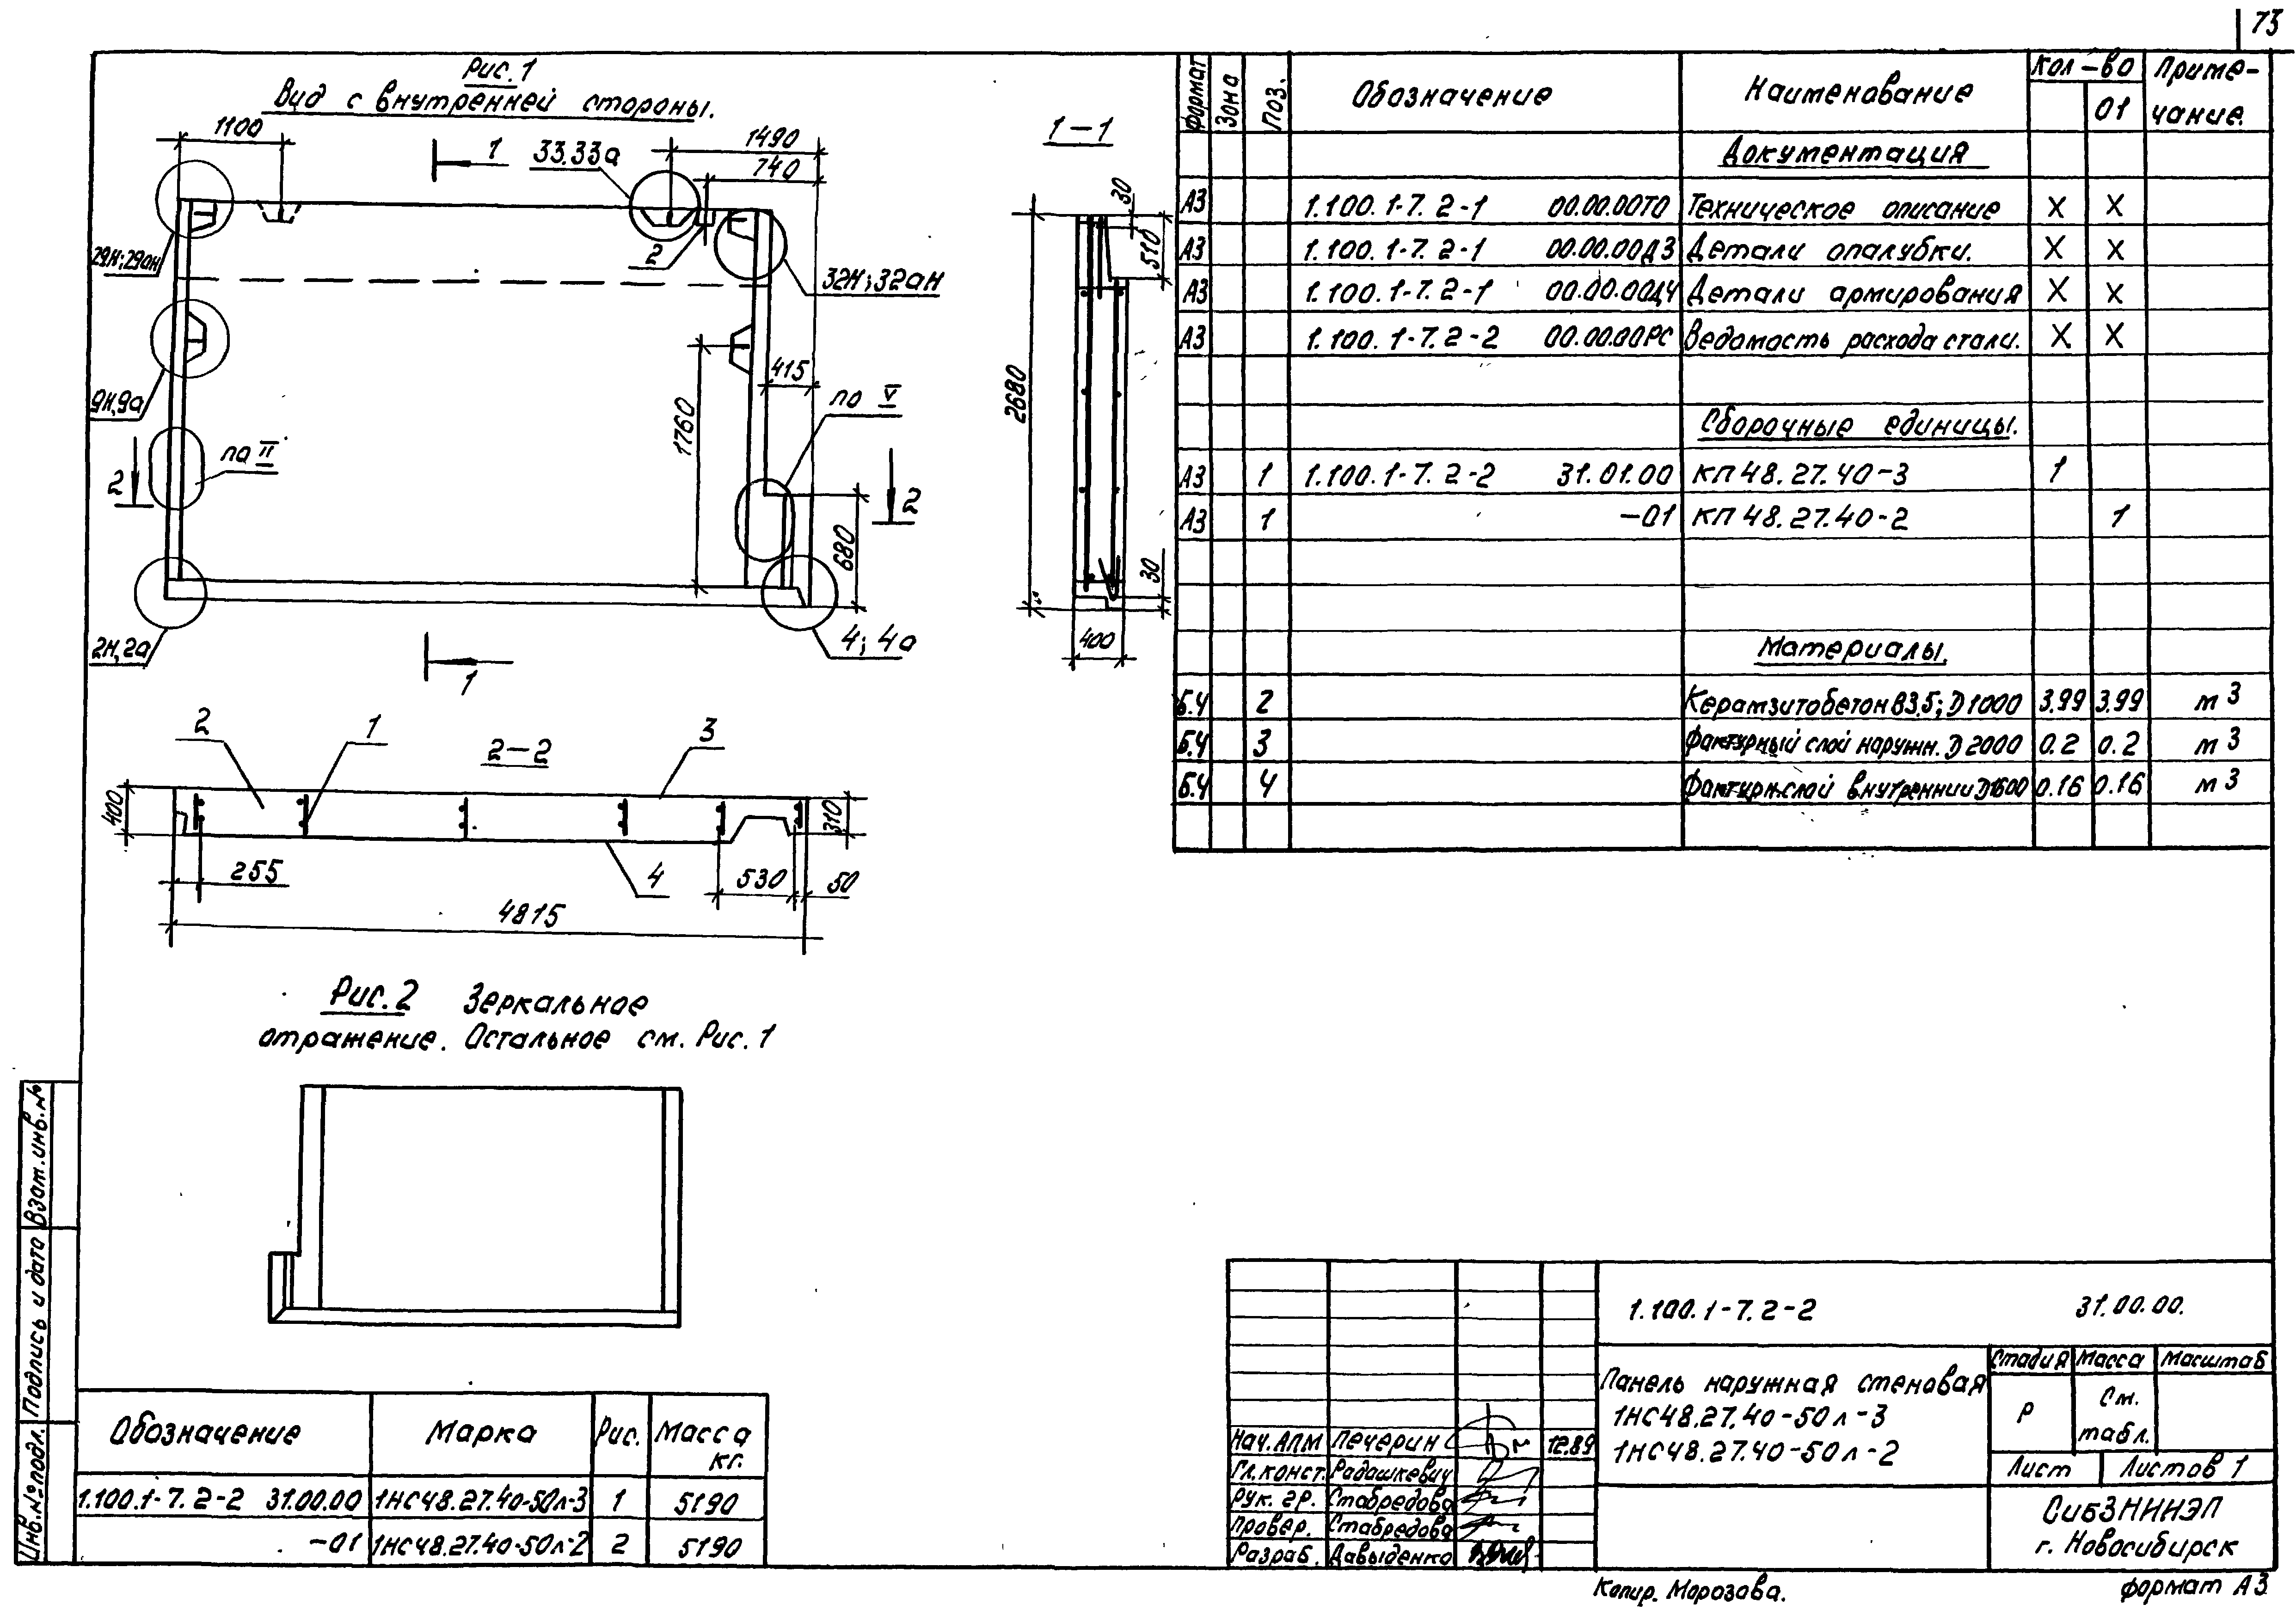 73
Рис. 1
Вид с внутренней стороны.
1100
1
33.33а
1490
740
29Н; 29аН
2
32Н; 32аН
9Н, 9а
415
по V
1760
по II
2
2
680
2Н, 2а
4; 4а
1
1-1
30
510
2680
30
400
2
1
2-2
3
400
310
255
4
530
50
4815
Рис. 2 Зеркальное
отражение. Остальное см. Рис. 1
Формат Зона Поз. Обозначение Наименование Кол-во Приме-
01 чание.
Документация
А3 1.100.1-7.2-1 00.00.00ТО Техническое описание X X
А3 1.100.1-7.2-1 00.00.00Д3 Детали опалубки. X X
А3 1.100.1-7.2-1 00.00.00Д4 Детали армирования X X
А3 1.100.1-7.2-2 00.00.00РС Ведомость расхода стали. X X
Сборочные единицы.
А3 1 1.100.1-7.2-2 31.01.00 КП 48.27.40-3 1
А3 1 -01 КП 48.27.40-2 1
Материалы.
Б.Ч 2 Керамзитобетон В3,5; D1000 3.99 3.99 м3
Б.Ч 3 Фактурный слой наружн. D2000 0.2 0.2 м3
Б.Ч 4 Фактурн.слой внутренний D1600 0.16 0.16 м3
Взам.инв.№
Подпись и дата
Инв.№подл.
Обозначение Марка Рис. Масса кг.
1.100.1-7.2-2 31.00.00 1НС48.27.40-50л-3 1 5190
-01 1НС48.27.40-50л-2 2 5190
1.100.1-7.2-2 31.00.00.
Панель наружная стеновая
1НС48.27.40-50л-3
1НС48.27.40-50л-2
Стадия Масса Масштаб
Р См. табл.
Лист Листов 1
СибЗНИИЭП
г. Новосибирск
Нач.АПМ Печерин 12.89
Гл.конст. Радашкевич
Рук. гр. Стабредова
Провер. Стабредова
Разраб. Давыденко
Копир. Морозова.
формат А3